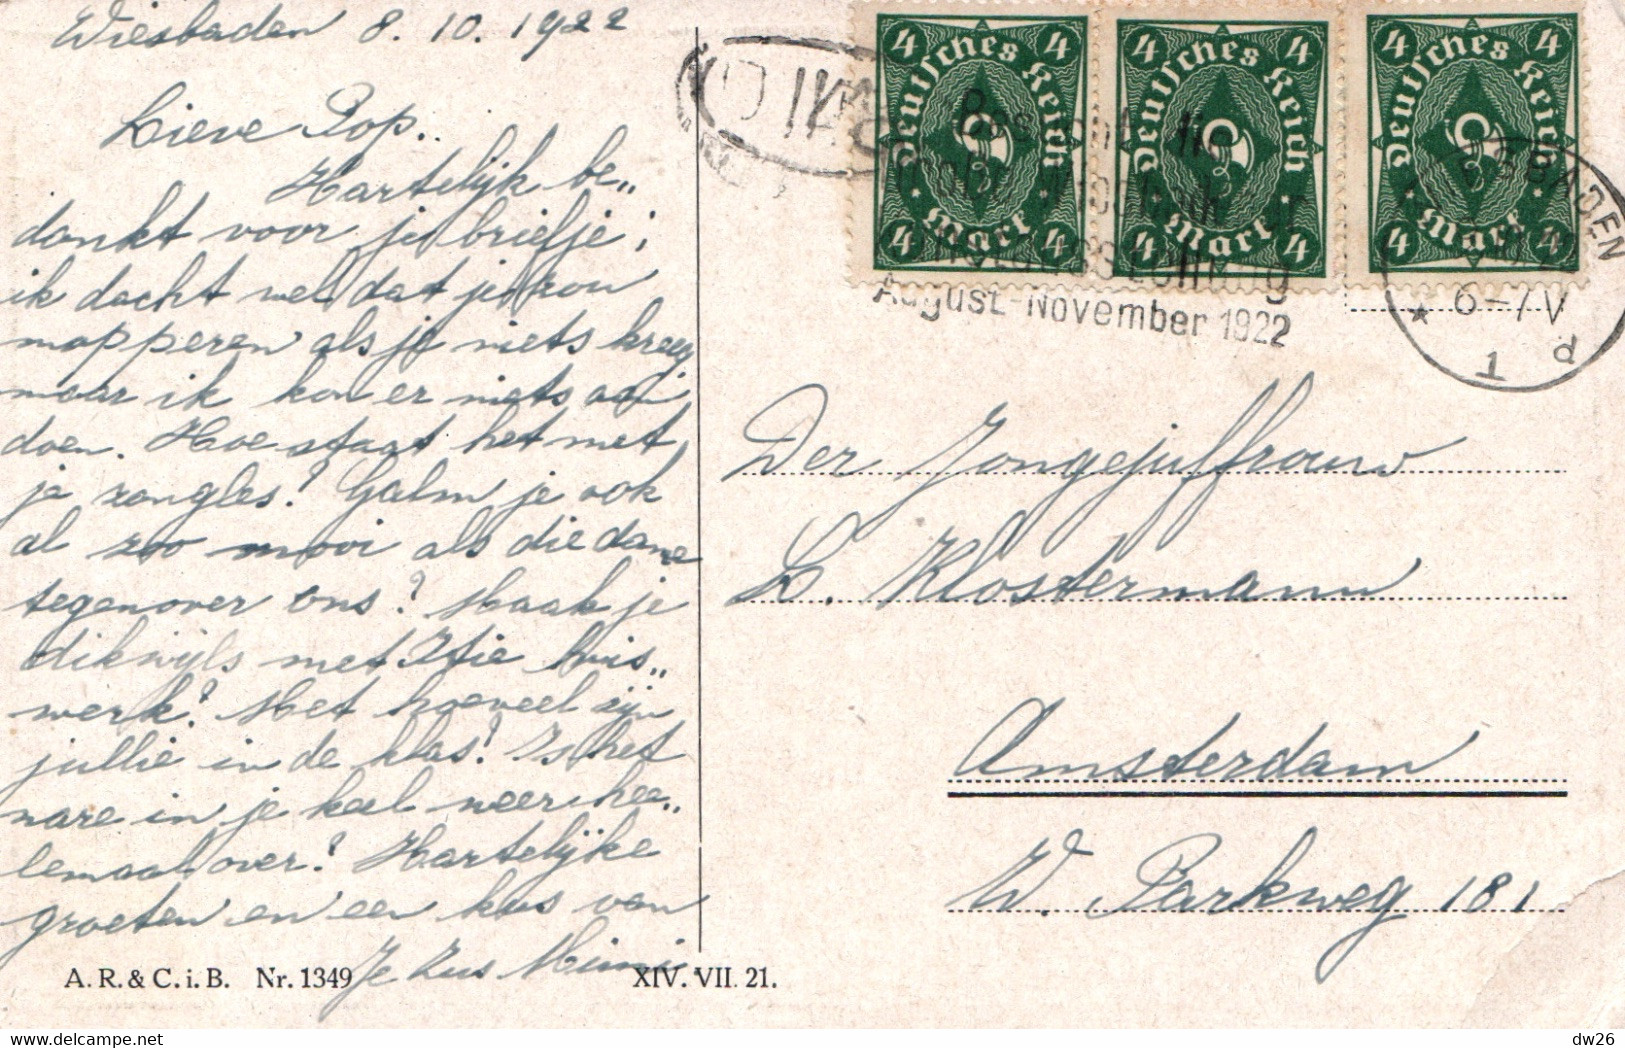 Wiesbaden 8.10.1922
Lieve Pop..
Hartelijk be,,
dankt voor je briefje;
ik dacht wel dat je kon
mopperen als je niets kreeg
maar ik kon er niets aan
doen. Hoe staat het met
je zangles? Galm je ook
al zoo mooi als die dame
tegenover ons? Maak je
dikwijls met huis,,
werk? Met hoeveel zijn
jullie in de klas? Is het
nare in je keel weer hee,,
lemaal over? Hartelijke
groeten en een kus van
Je Zus Mimi
A. R. & C. i. B. Nr. 1349
XIV. VII. 21.
4 Deutsches Reich 4
4 Mark 4
4 Deutsches Reich 4
4 Mark 4
4 Deutsches Reich 4
4 Mark 4
August-November 1922
WIESBADEN
* 6-7 V
1 d
Der Jongejuffrouw
L. Klostermann
Amsterdam
W. Parkweg 181